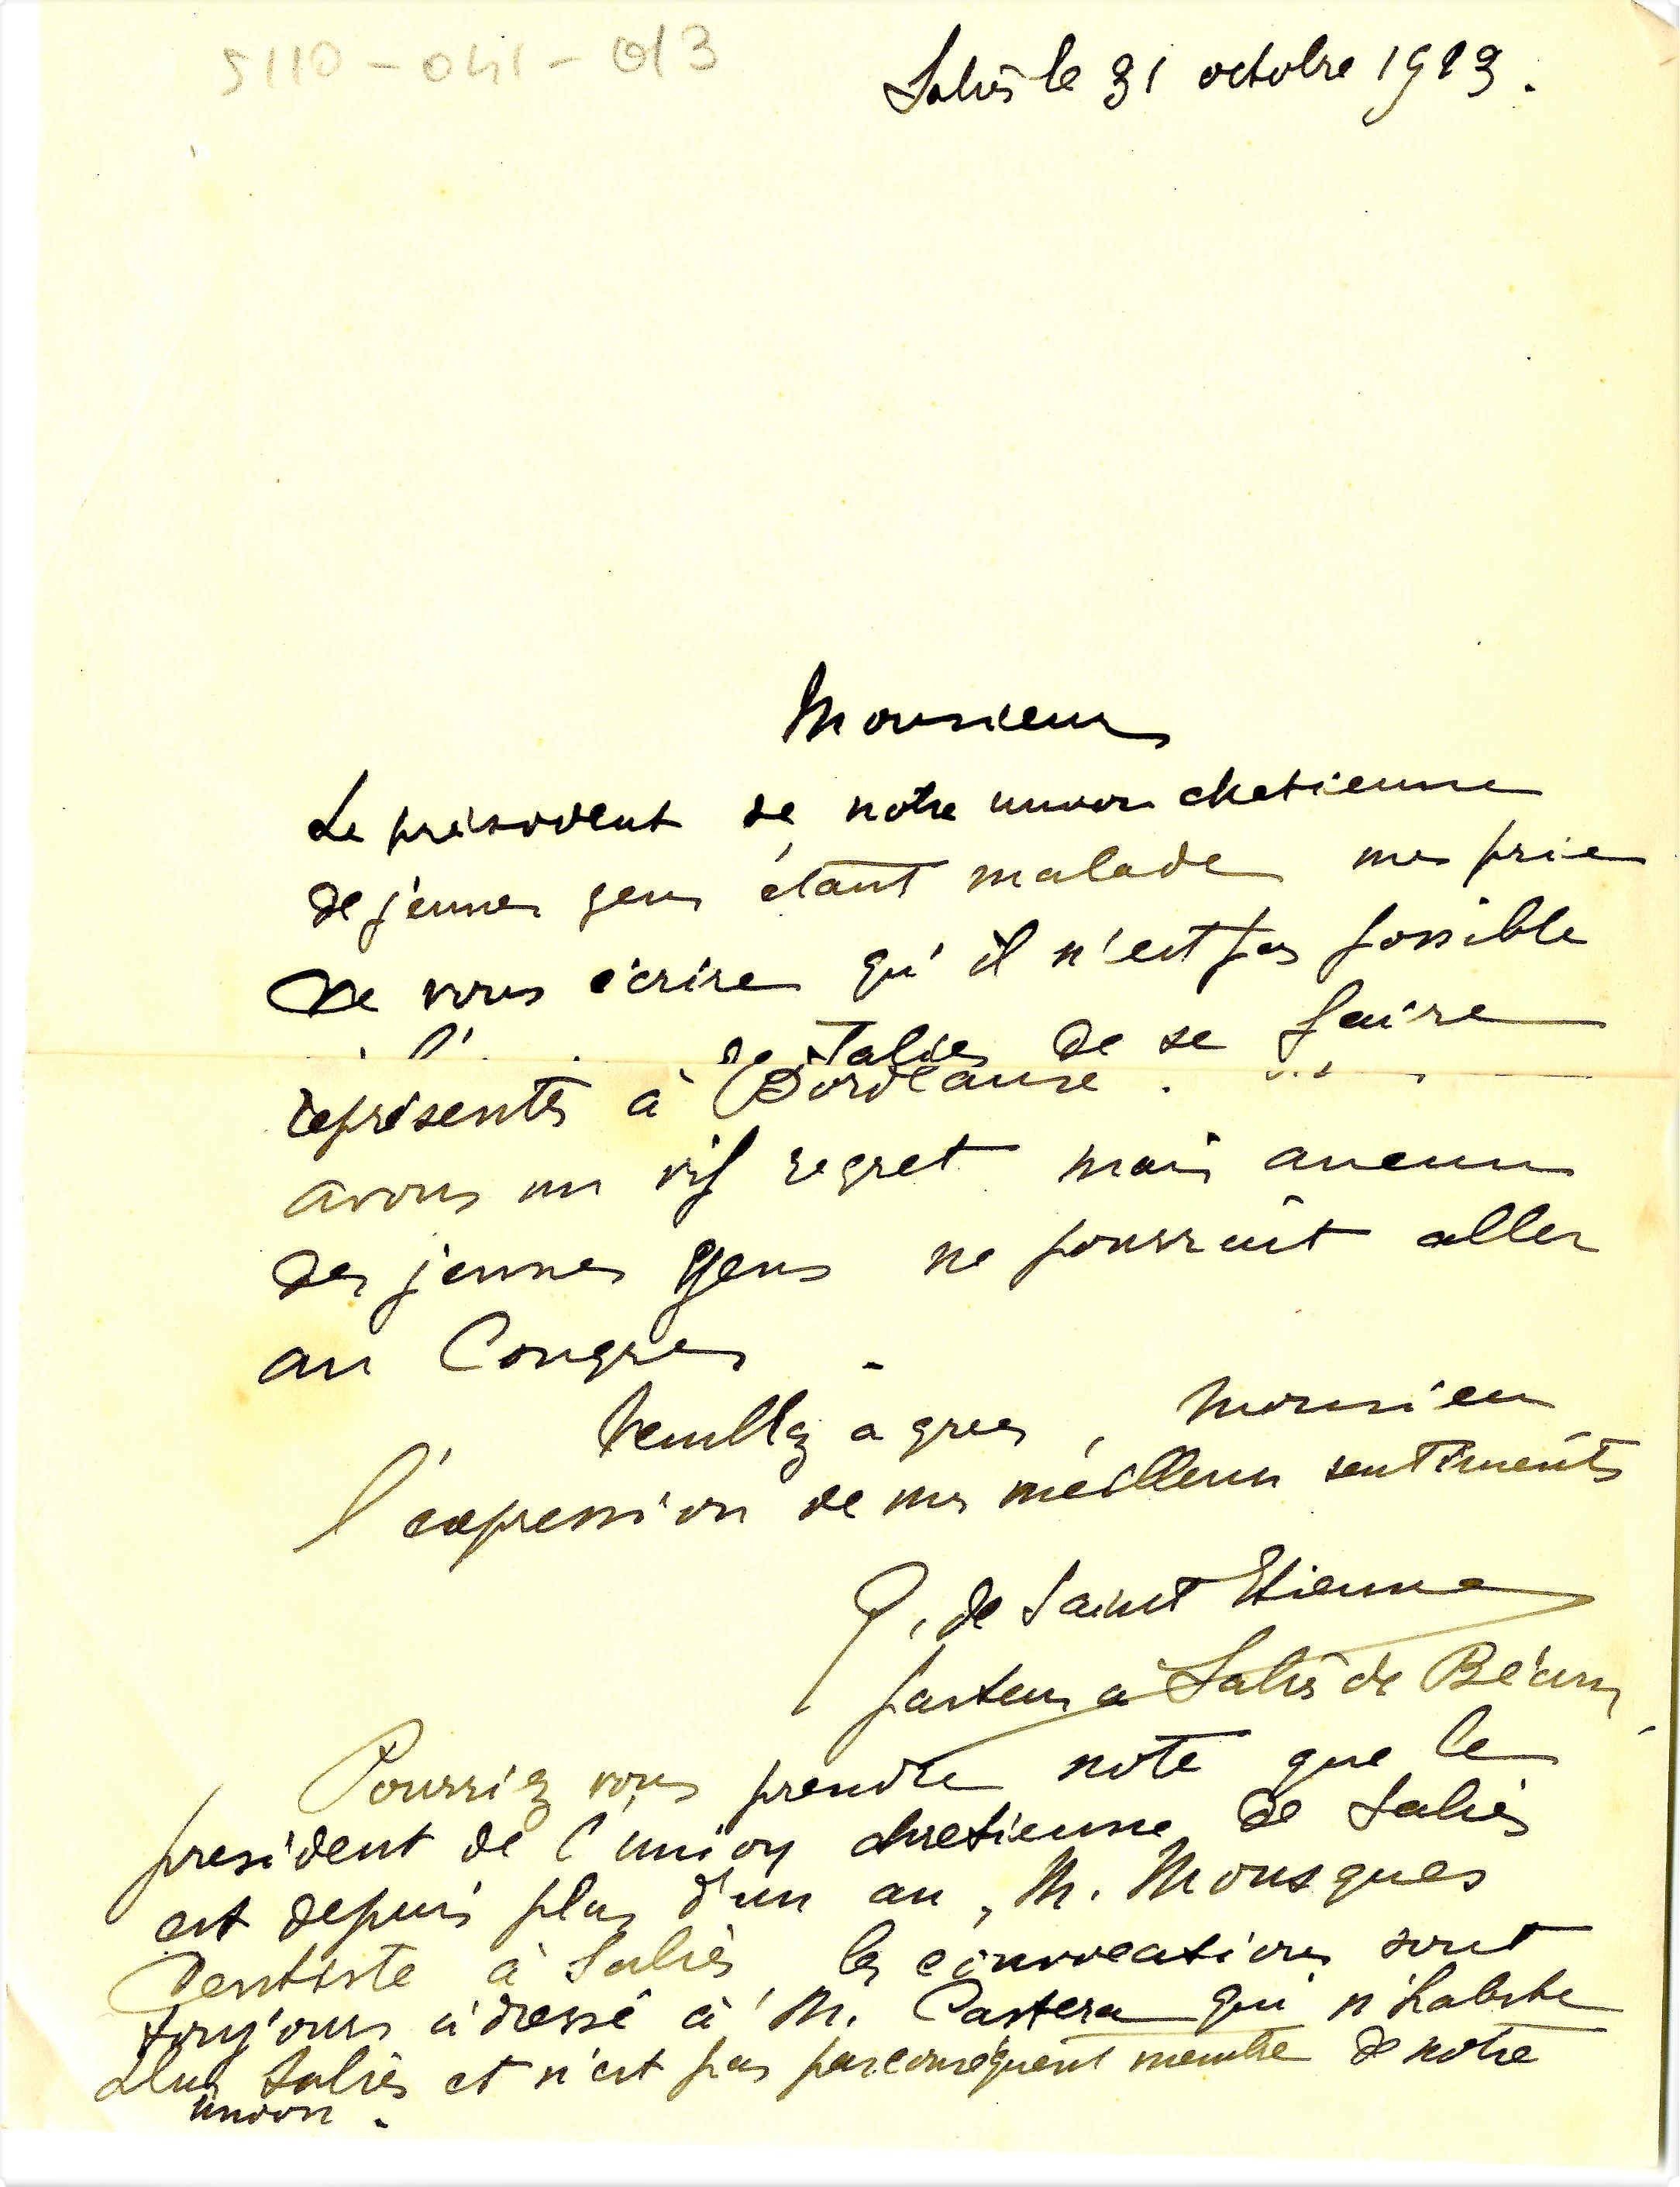 5110-041-013
Saliès le 31 octobre 1913.
Monsieur
Le président de notre union chetienne
de jeunes gens étant malade me prie
de vous écrire qu'il n'est pas possible
de Salies de se faire
représenter à Bordeaux.
avons un vif regret mais aucun
des jeunes gens ne pourrait aller
au Congres.
Veuillez agreer, Monsieur
l'expression de mes meilleurs sentiments
de Saint Etienne
pasteur à Saliès de Béarn
Pourriez vous prendre note que le
president de l'union chretienne de Saliès
est depuis plus d'un an, M. Mousques
dentiste à Saliès, les convocations sont
toujours adressé à M. Castera qui n'habite
plus Saliès et n'est pas parconséquent membre de notre
union.